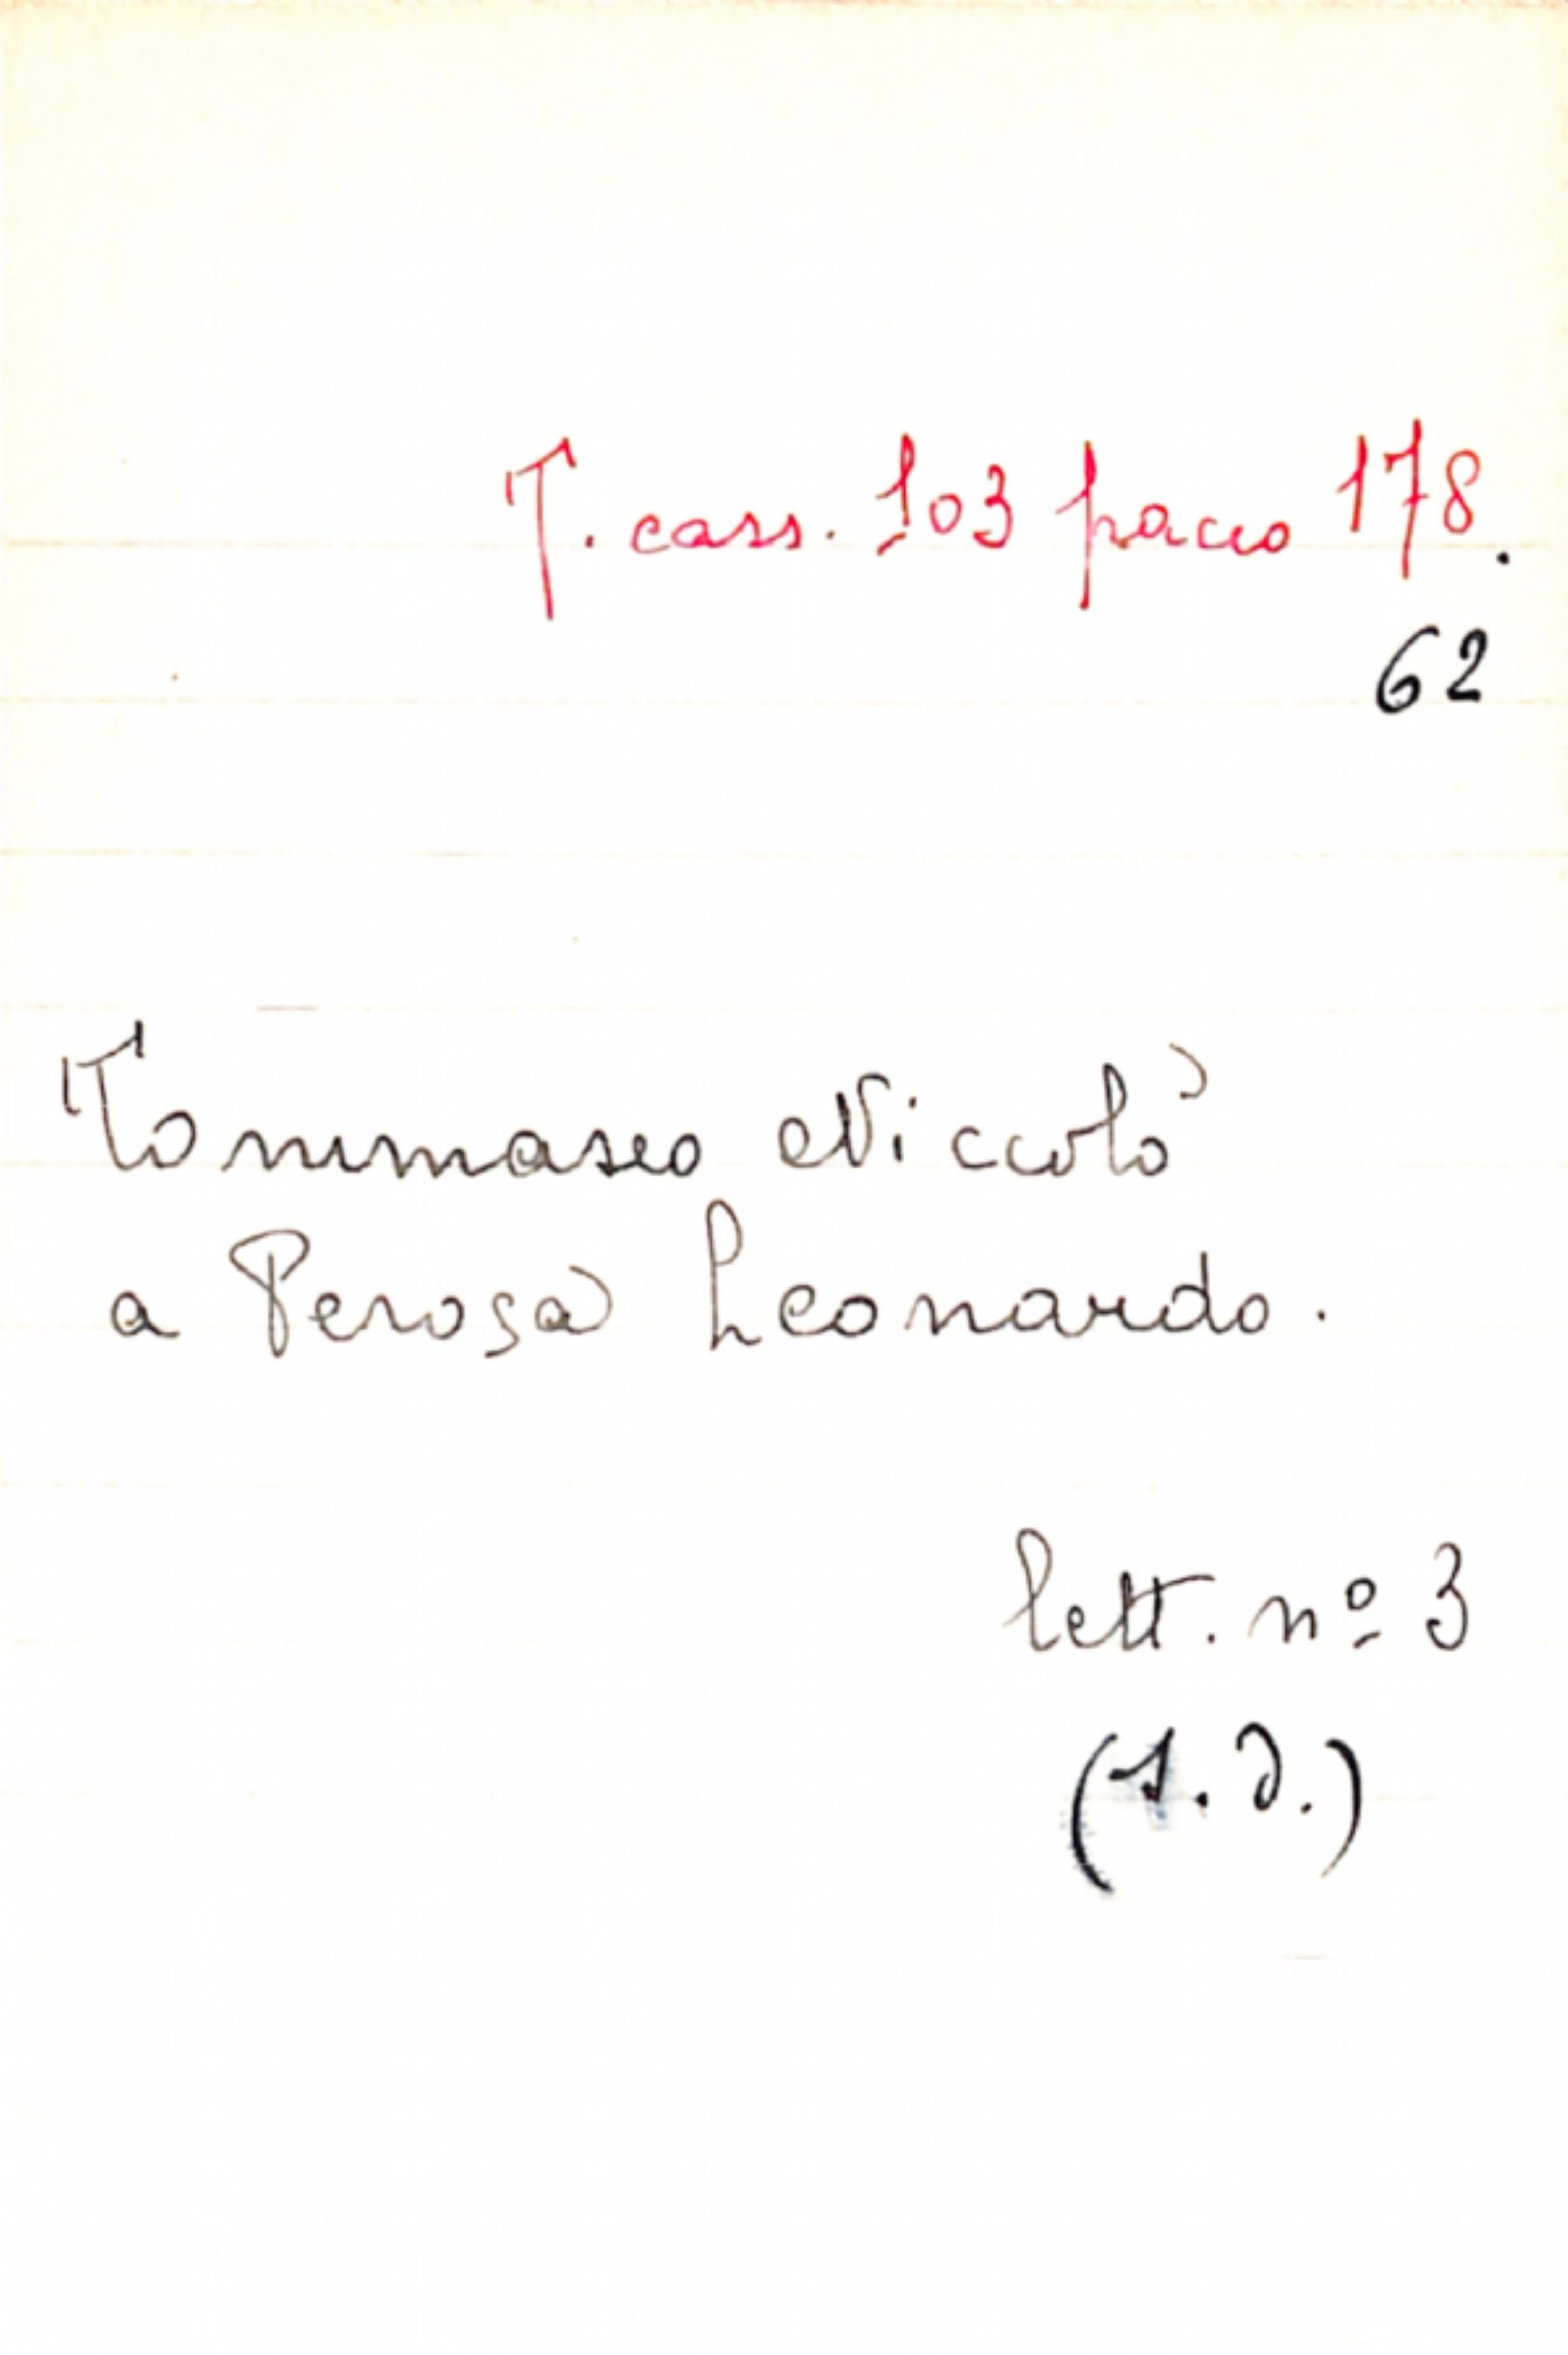 T. cass. 103 pacco 178.
62
Tommaseo Niccolò
a Perosa Leonardo.
lett. nº 3
(s. d.)